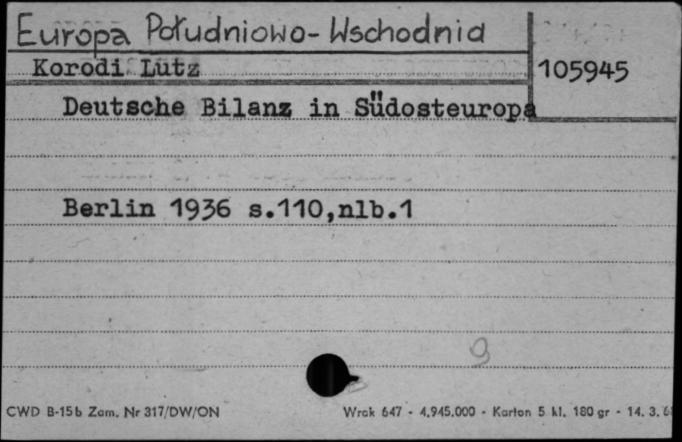 Europa Południowo-Wschodnia
Korodi Lutz
105945
Deutsche Bilanz in Südosteuropa
Berlin 1936 s.110,nlb.1
9
CWD B-15b Zam. Nr 317/DW/ON
Wrak 647 - 4.945.000 - Karton 5 kl. 180 gr - 14. 3. 6